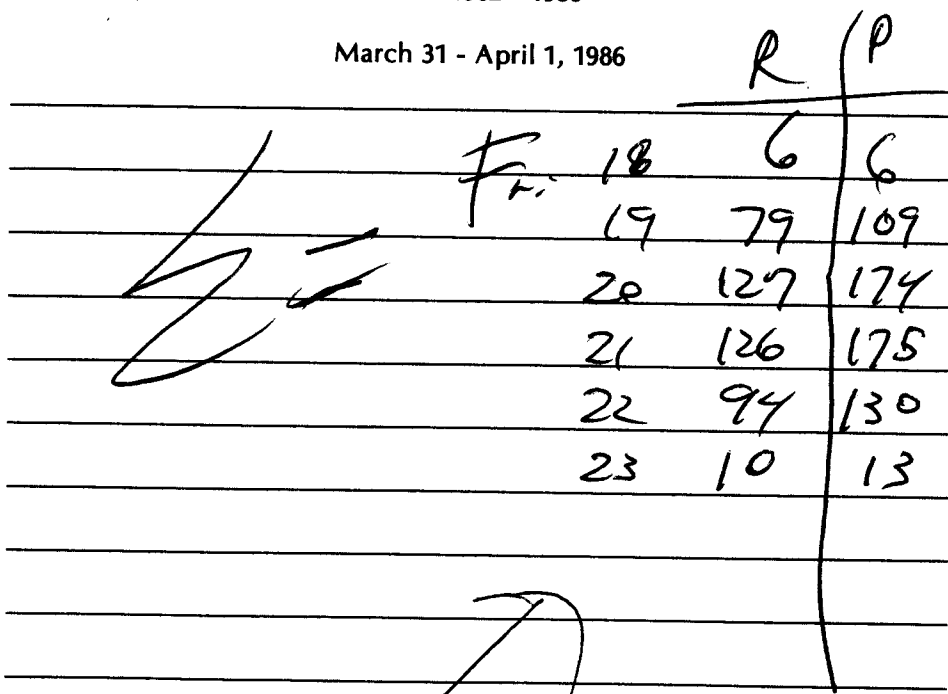 March 31 - April 1, 1986
R P
Fri. 18 6 6
19 79 109
20 127 174
21 126 175
22 94 130
23 10 13